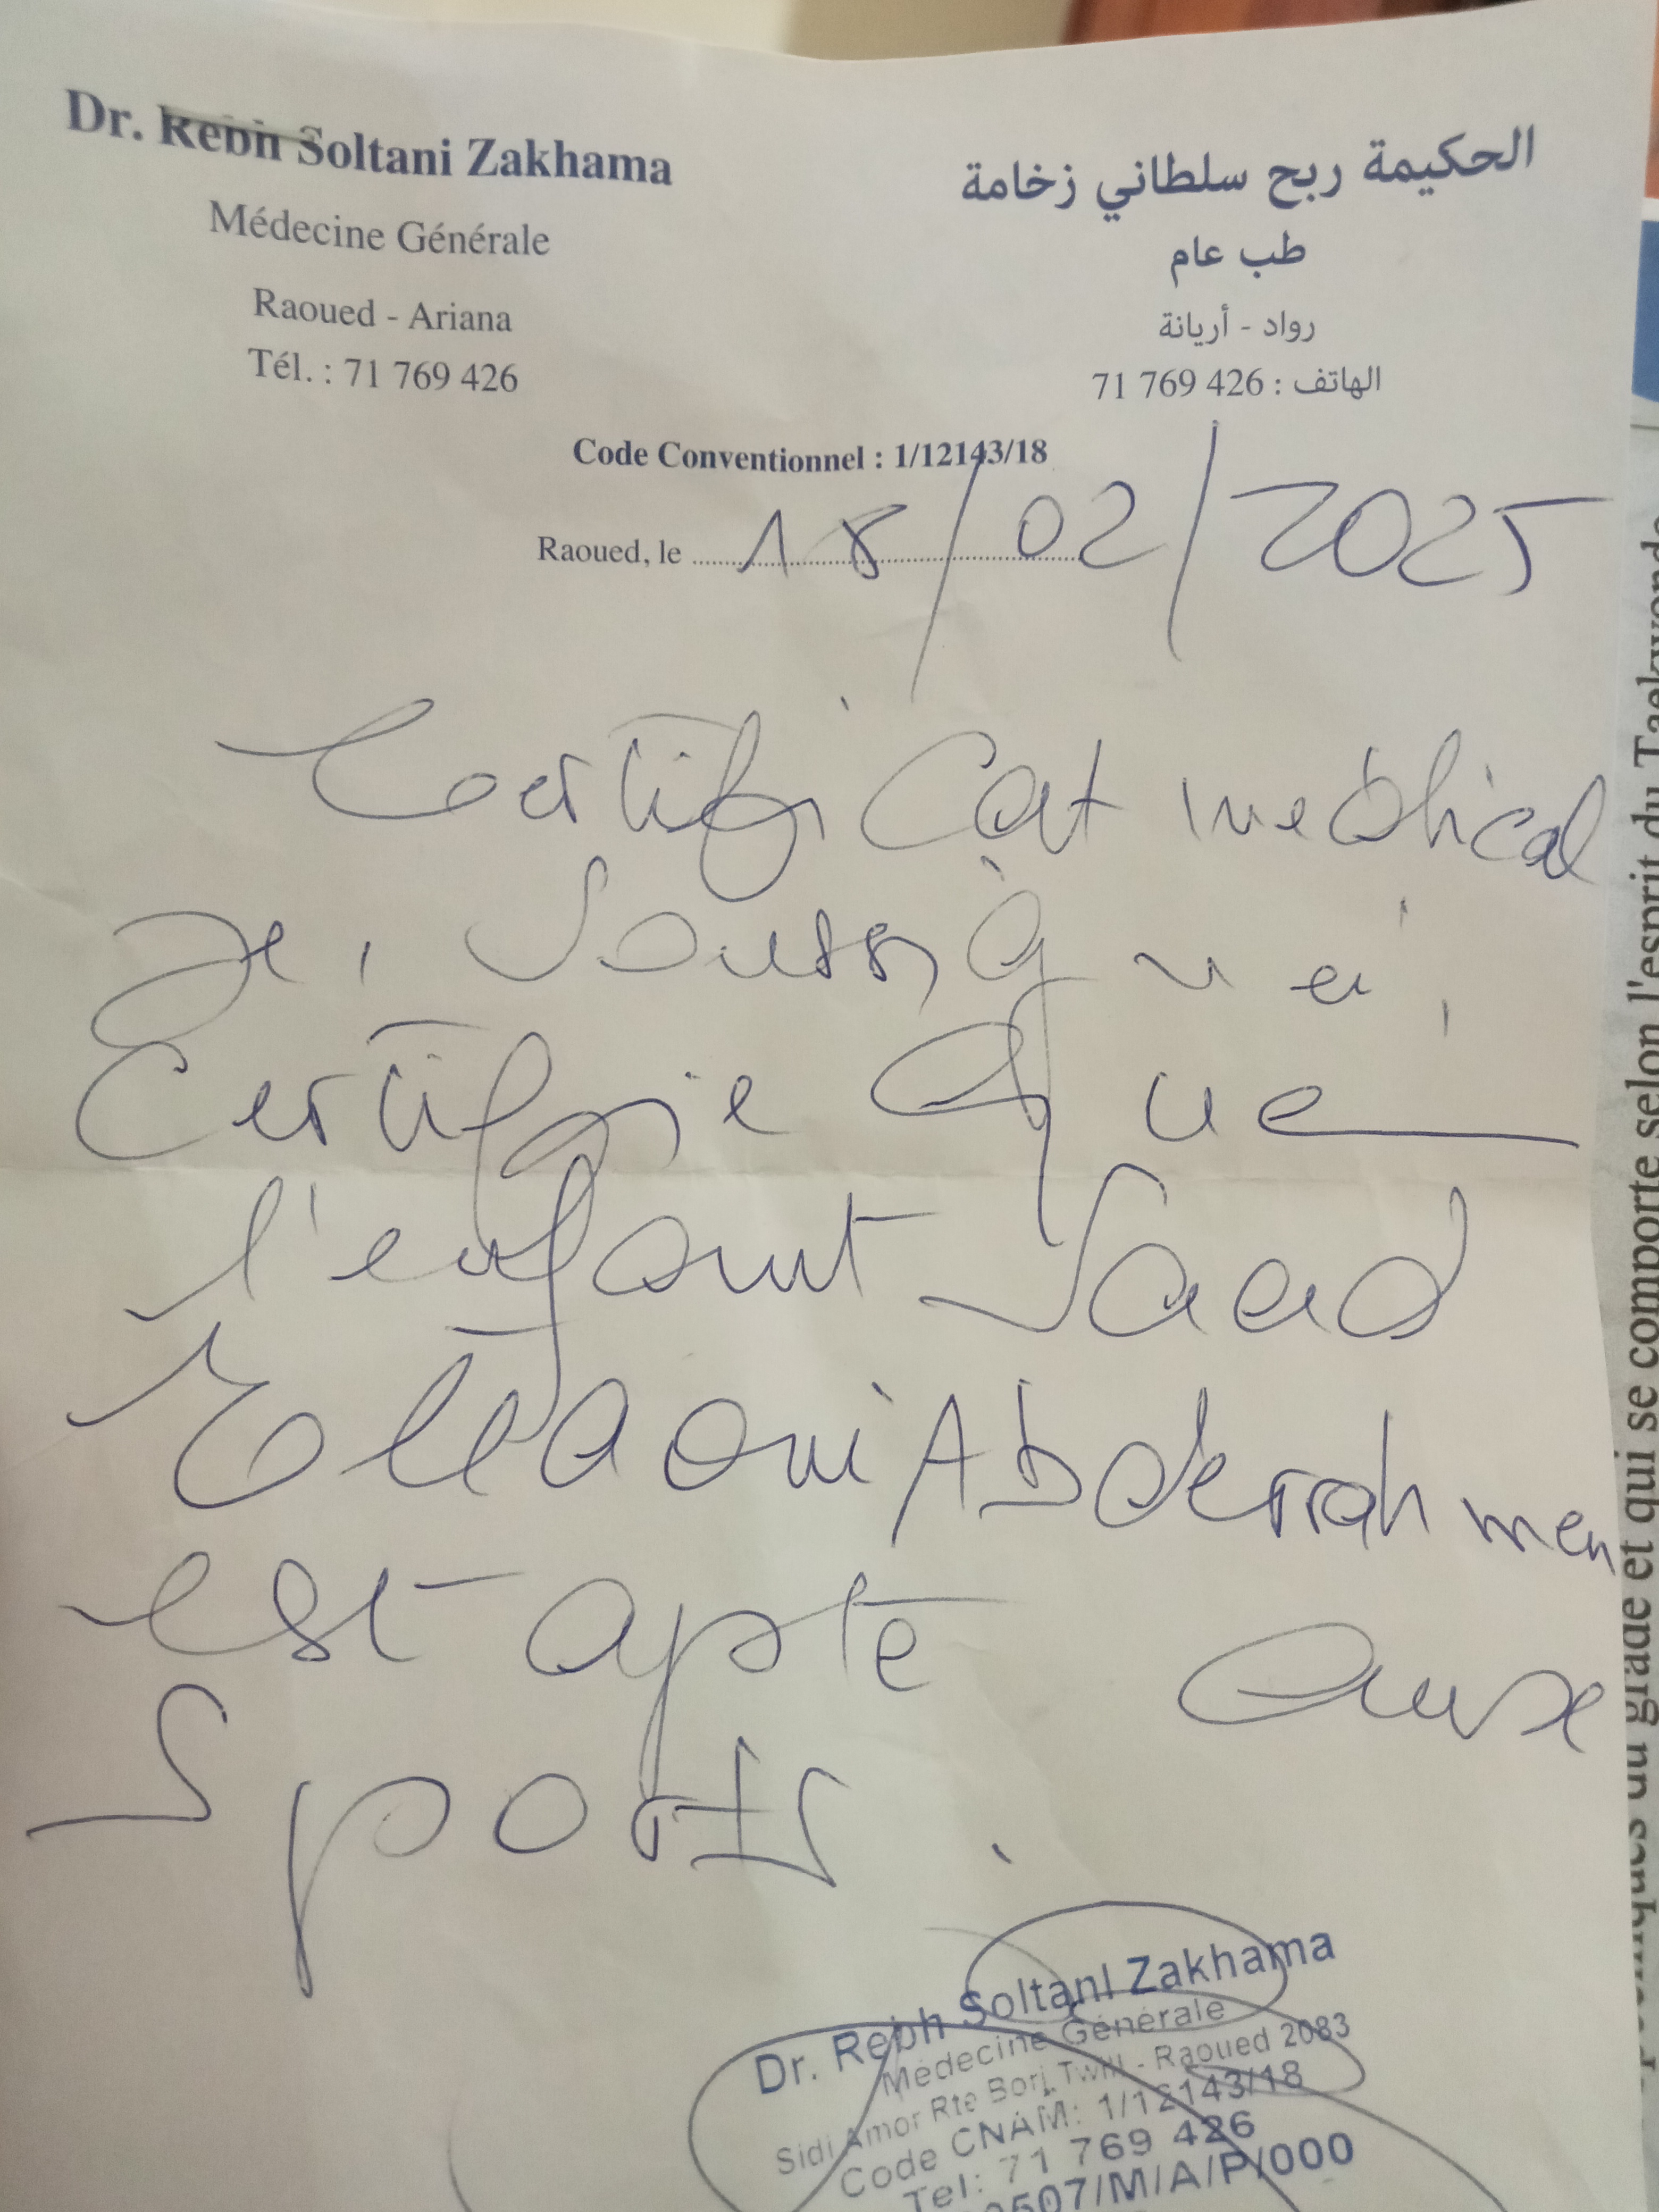 Dr. Rebh Soltani Zakhama
Médecine Générale
Raoued - Ariana
Tél. : 71 769 426
الحكيمة ربح سلطاني زخامة
طب عام
رواد - أريانة
الهاتف : 426 769 71
Code Conventionnel : 1/12143/18
Raoued, le 18/02/2025
Certificat medical
Je, soussigné,
Certifie que
l'enfant Saad
Abderrahmen
est apte aux
Sports.
Dr. Rebh Soltani Zakhama
Médecine Générale
Sidi Amor Rte Borj Twill - Raoued 2083
Code CNAM: 1/12143/18
Tel: 71 769 426
507/M/A/P/000
et qui se comporte selon l'esprit du Taekwondo